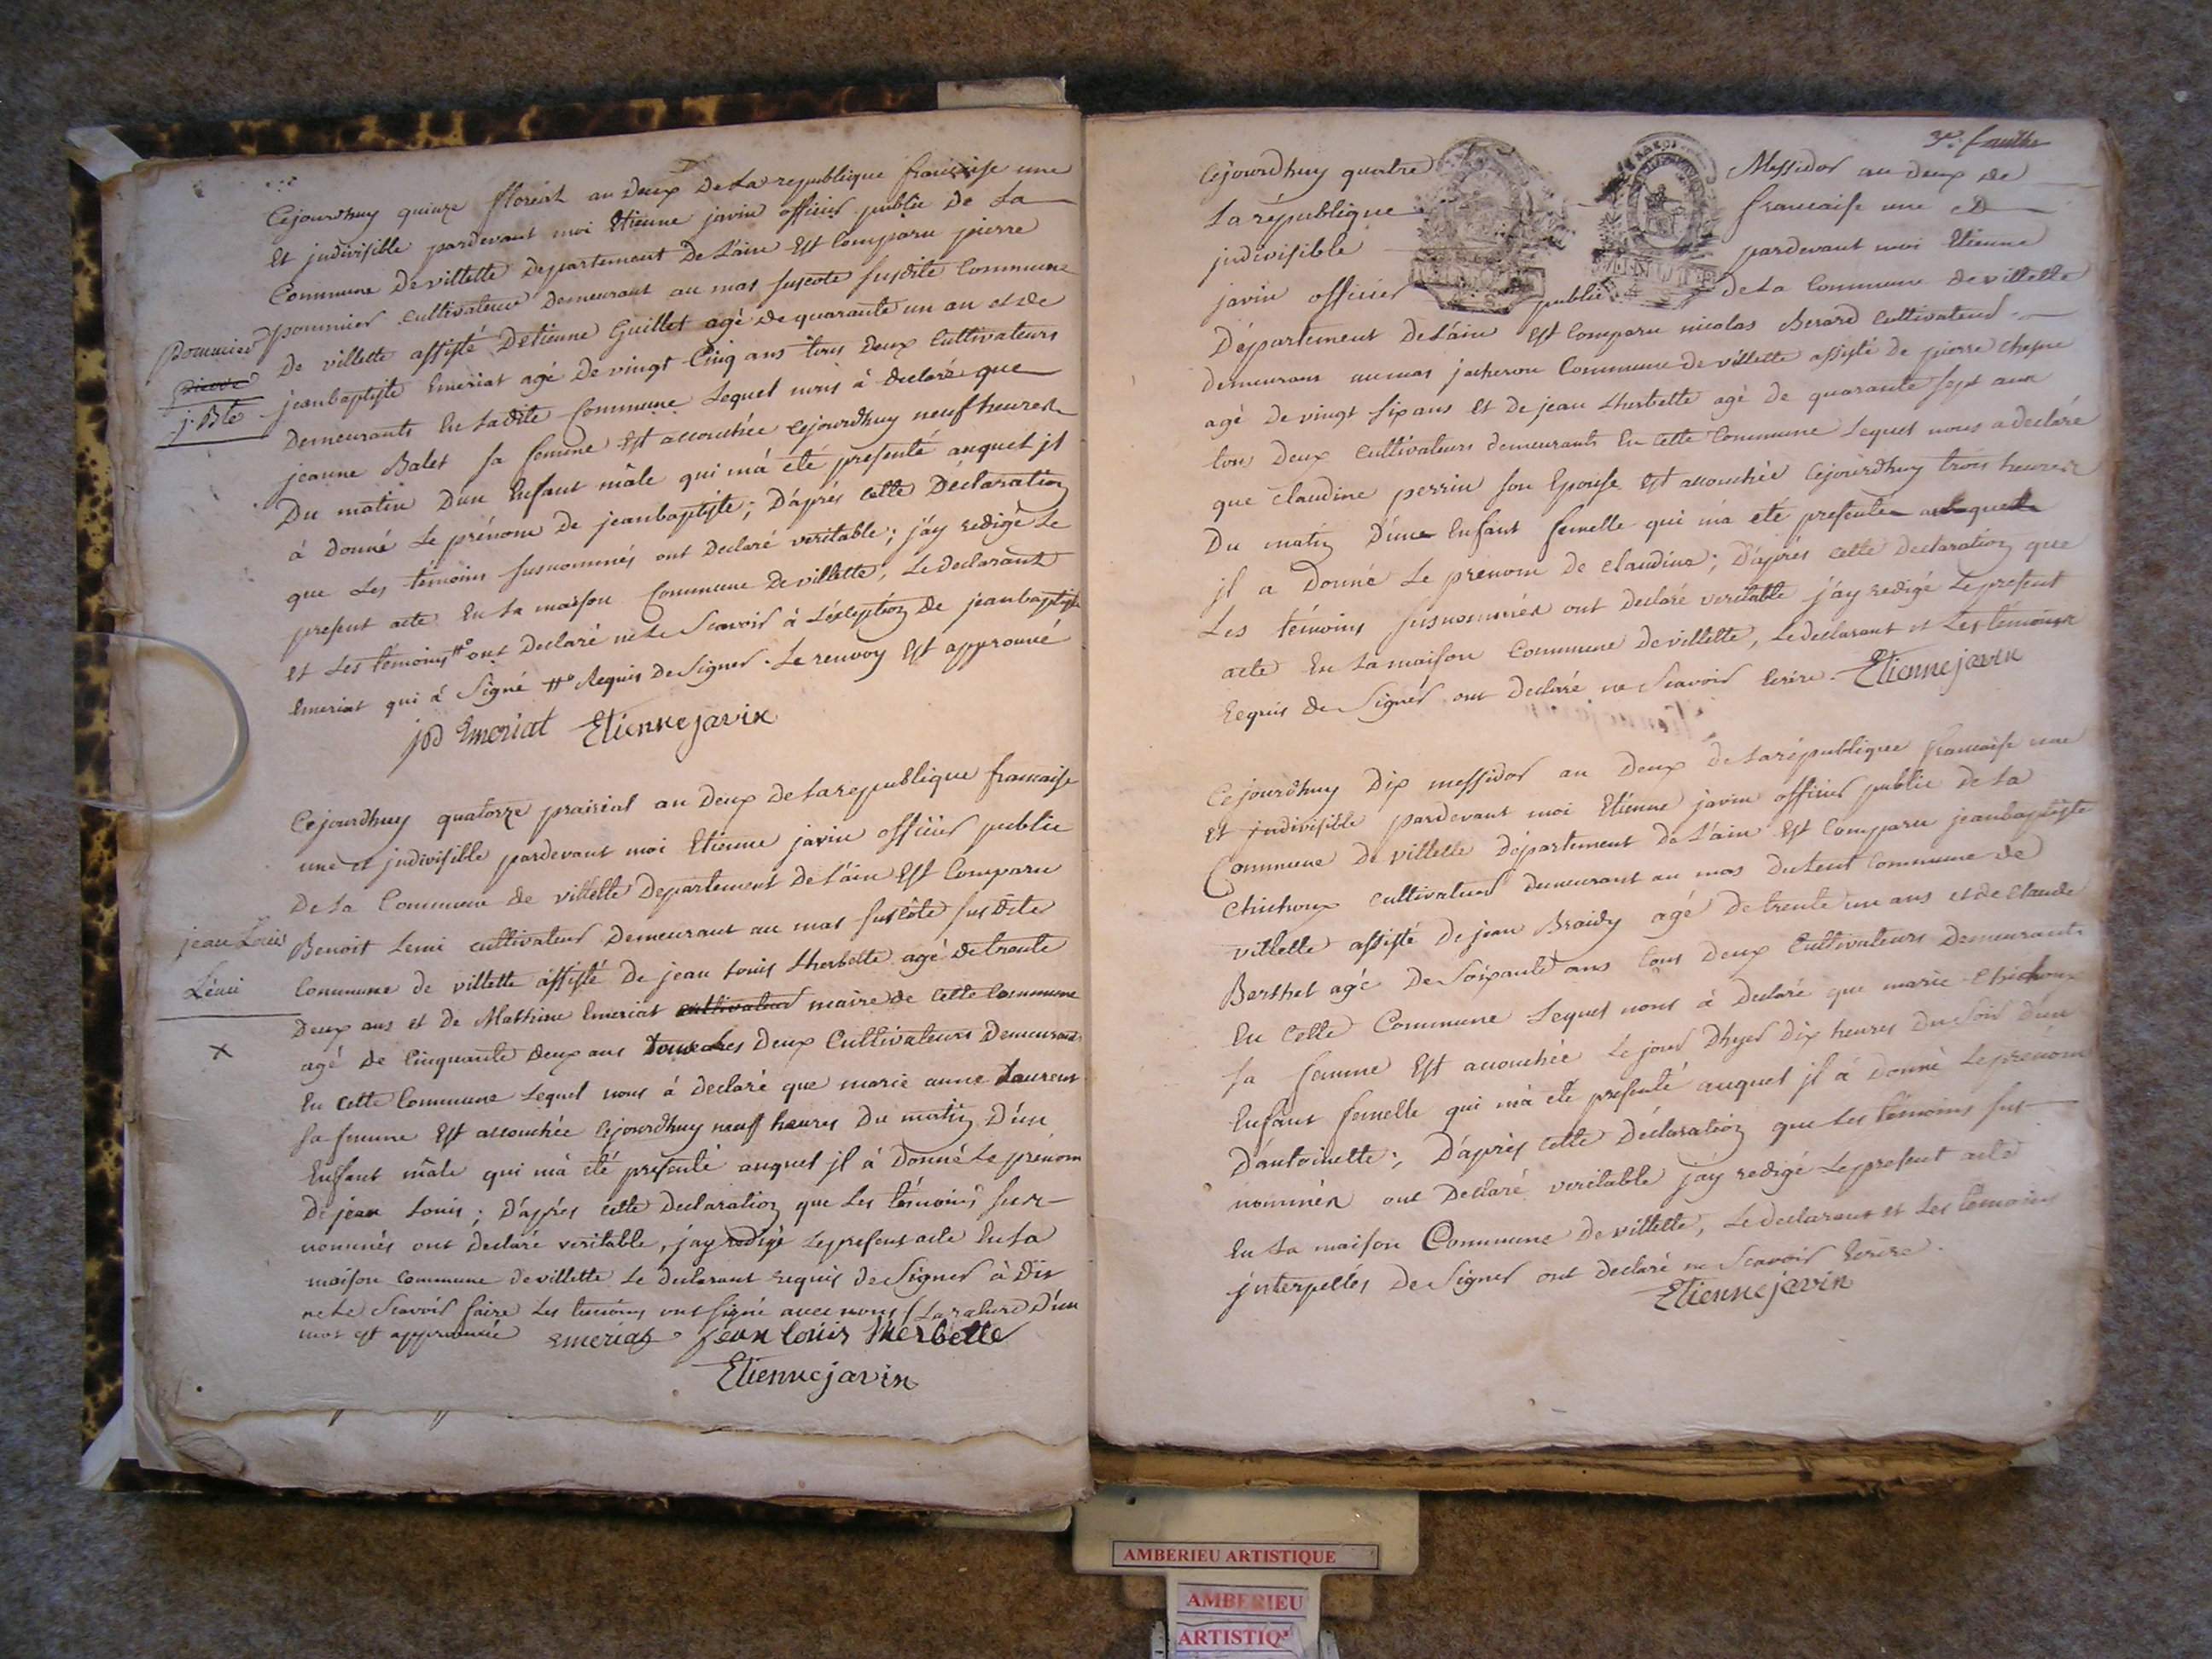 Cejourdhuy quinze floreal an deux de la republique française une
Et jndivisible pardevant moi Etienne javin officier public de la
Commune de villette département de L'ain Est Comparu pierre
pommier cultivateur demeurant au mas suscote susdite Commune
de villette assisté d'Etienne Guillet agé de quarante un an et de
jeanbaptiste Emeriat agé de vingt Cinq ans tous deux Cultivateurs
Demeurants En Ladite Commune Lequel nous à declaré que
jeanne Balet sa femme Est accouchée cejourdhuy neuf heures
Du matin D'un Enfant mâle qui m'à été presenté auquel jl
à donné Le prénom de jeanbaptiste; D'après cette Déclaration
que Les témoins susnommés ont Declaré veritable; j'ay redigé Le
present acte En La maison Commune de villette, Le declarant
et Les témoins #° ont Declaré ne Le Scavoir à L'éxception de jeanbaptiste
Emeriat qui à Signé #° Requis de Signer. Le renvoy Est approuvé
jbd Emeriat Etienne javin
pommier
pierre
j. Bte
Cejourdhuy quatorze prairial an deux de la republique francaise
une et jndivisible pardevant moi Etienne javin officier public
De La Commune de villette Département de L'ain Est Comparu
Benoit Lemi cultivateur Demeurant au mas suscôte susdite
Commune de villette assisté de jean Louis Lherbette agé de trente
Deux ans et de Mathieu Emeriat cultivateur maire de cette Commune
agé de Cinquante deux ans tous Les deux Cultivateurs Demeurants
En cette Commune Lequel nous à declaré que marie anne Laurent
sa femme Est accouchée Cejourdhuy neuf heures Du matin D'un
Enfant mâle qui m'à été presenté auquel jl à donné Le prénom
De jean Louis; D'après cette Declaration que Les témoins sus-
nommés ont declaré veritable, j'ay redigé Le present acte En La
maison commune de villette Le declarant requis de Signer à Dit
ne Le Scavoir faire Les temoins ont signé avec nous (La rature D'un
mot est approuvée Emeriat jean louis lherbette
Etienne javin
jean Louis
Lémi
X
3e. feuillet
Cejourdhuy quatre Messidor an deux de
La république francaise une et
jndivisible pardevant moi Etienne
javin officier public de La Commune de villette
Département de L'ain Est Comparu nicolas Berard Cultivateur
demeurant au mas jacheron Commune de villette assisté de pierre
agé de vingt six ans Et de jean Lherbette agé de quarante sept ans
tous Deux cultivateurs demeurants En cette Commune Lequel nous a declaré
que claudine perrin son Epouse Est accouchée Cejourdhuy trois heures
Du matin D'une Enfant femelle qui m'a été presentée
jl a Donné Le prenom de claudine; D'après cette declaration que
Les témoins susnommés ont declaré veritable j'ay redigé Le present
acte En La maison Commune de villette, Le declarant et Les témoins
Requis de Signer ont Declaré ne Scavoir Ecrire. Etienne javin
Cejourdhuy Dix messidor an Deux de La république francaise une
Et jndivisible pardevant moi Etienne javin officier public de La
Commune de villette département de L'ain Est Comparu jeanbaptiste
Chichoux cultivateur demeurant au mas Commune de
villette assisté de jean Braidy agé de trente un ans et de Claude
Berthet agé de Soixante ans tous Deux Cultivateurs Demeurants
En cette Commune Lequel nous à Declaré que marie Chichoux
sa femme Est accouchée Le jour D'hyer Dix heures du Soir D'un
Enfant femelle qui m'à été presenté auquel jl à Donné Le prénom
D'antoinette; D'après cette Déclaration que Les témoins sus-
nommés ont Declaré veritable j'ay redigé Le present acte
En La maison Commune de villette, Le declarant et Les témoins
jnterpellés de Signer ont declaré ne Scavoir Ecrire.
Etienne javin
AMBERIEU ARTISTIQUE
AMBERIEU